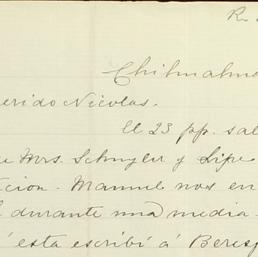 R.
Chihuahua
erido Nicolas.
El 23 pp. sal
e Mrs. Schuyler y Lipe
cion. Manuel nos en
durante una media
esta escribí á Beresf